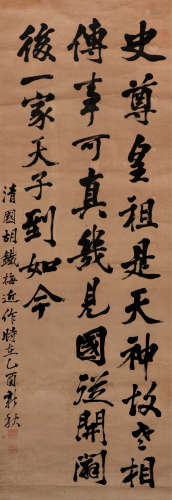 史尊皇祖是天神故老相
傳事可真幾見國從開闢
後一家天子到如今
清國胡鐵梅近作時在乙酉新秋